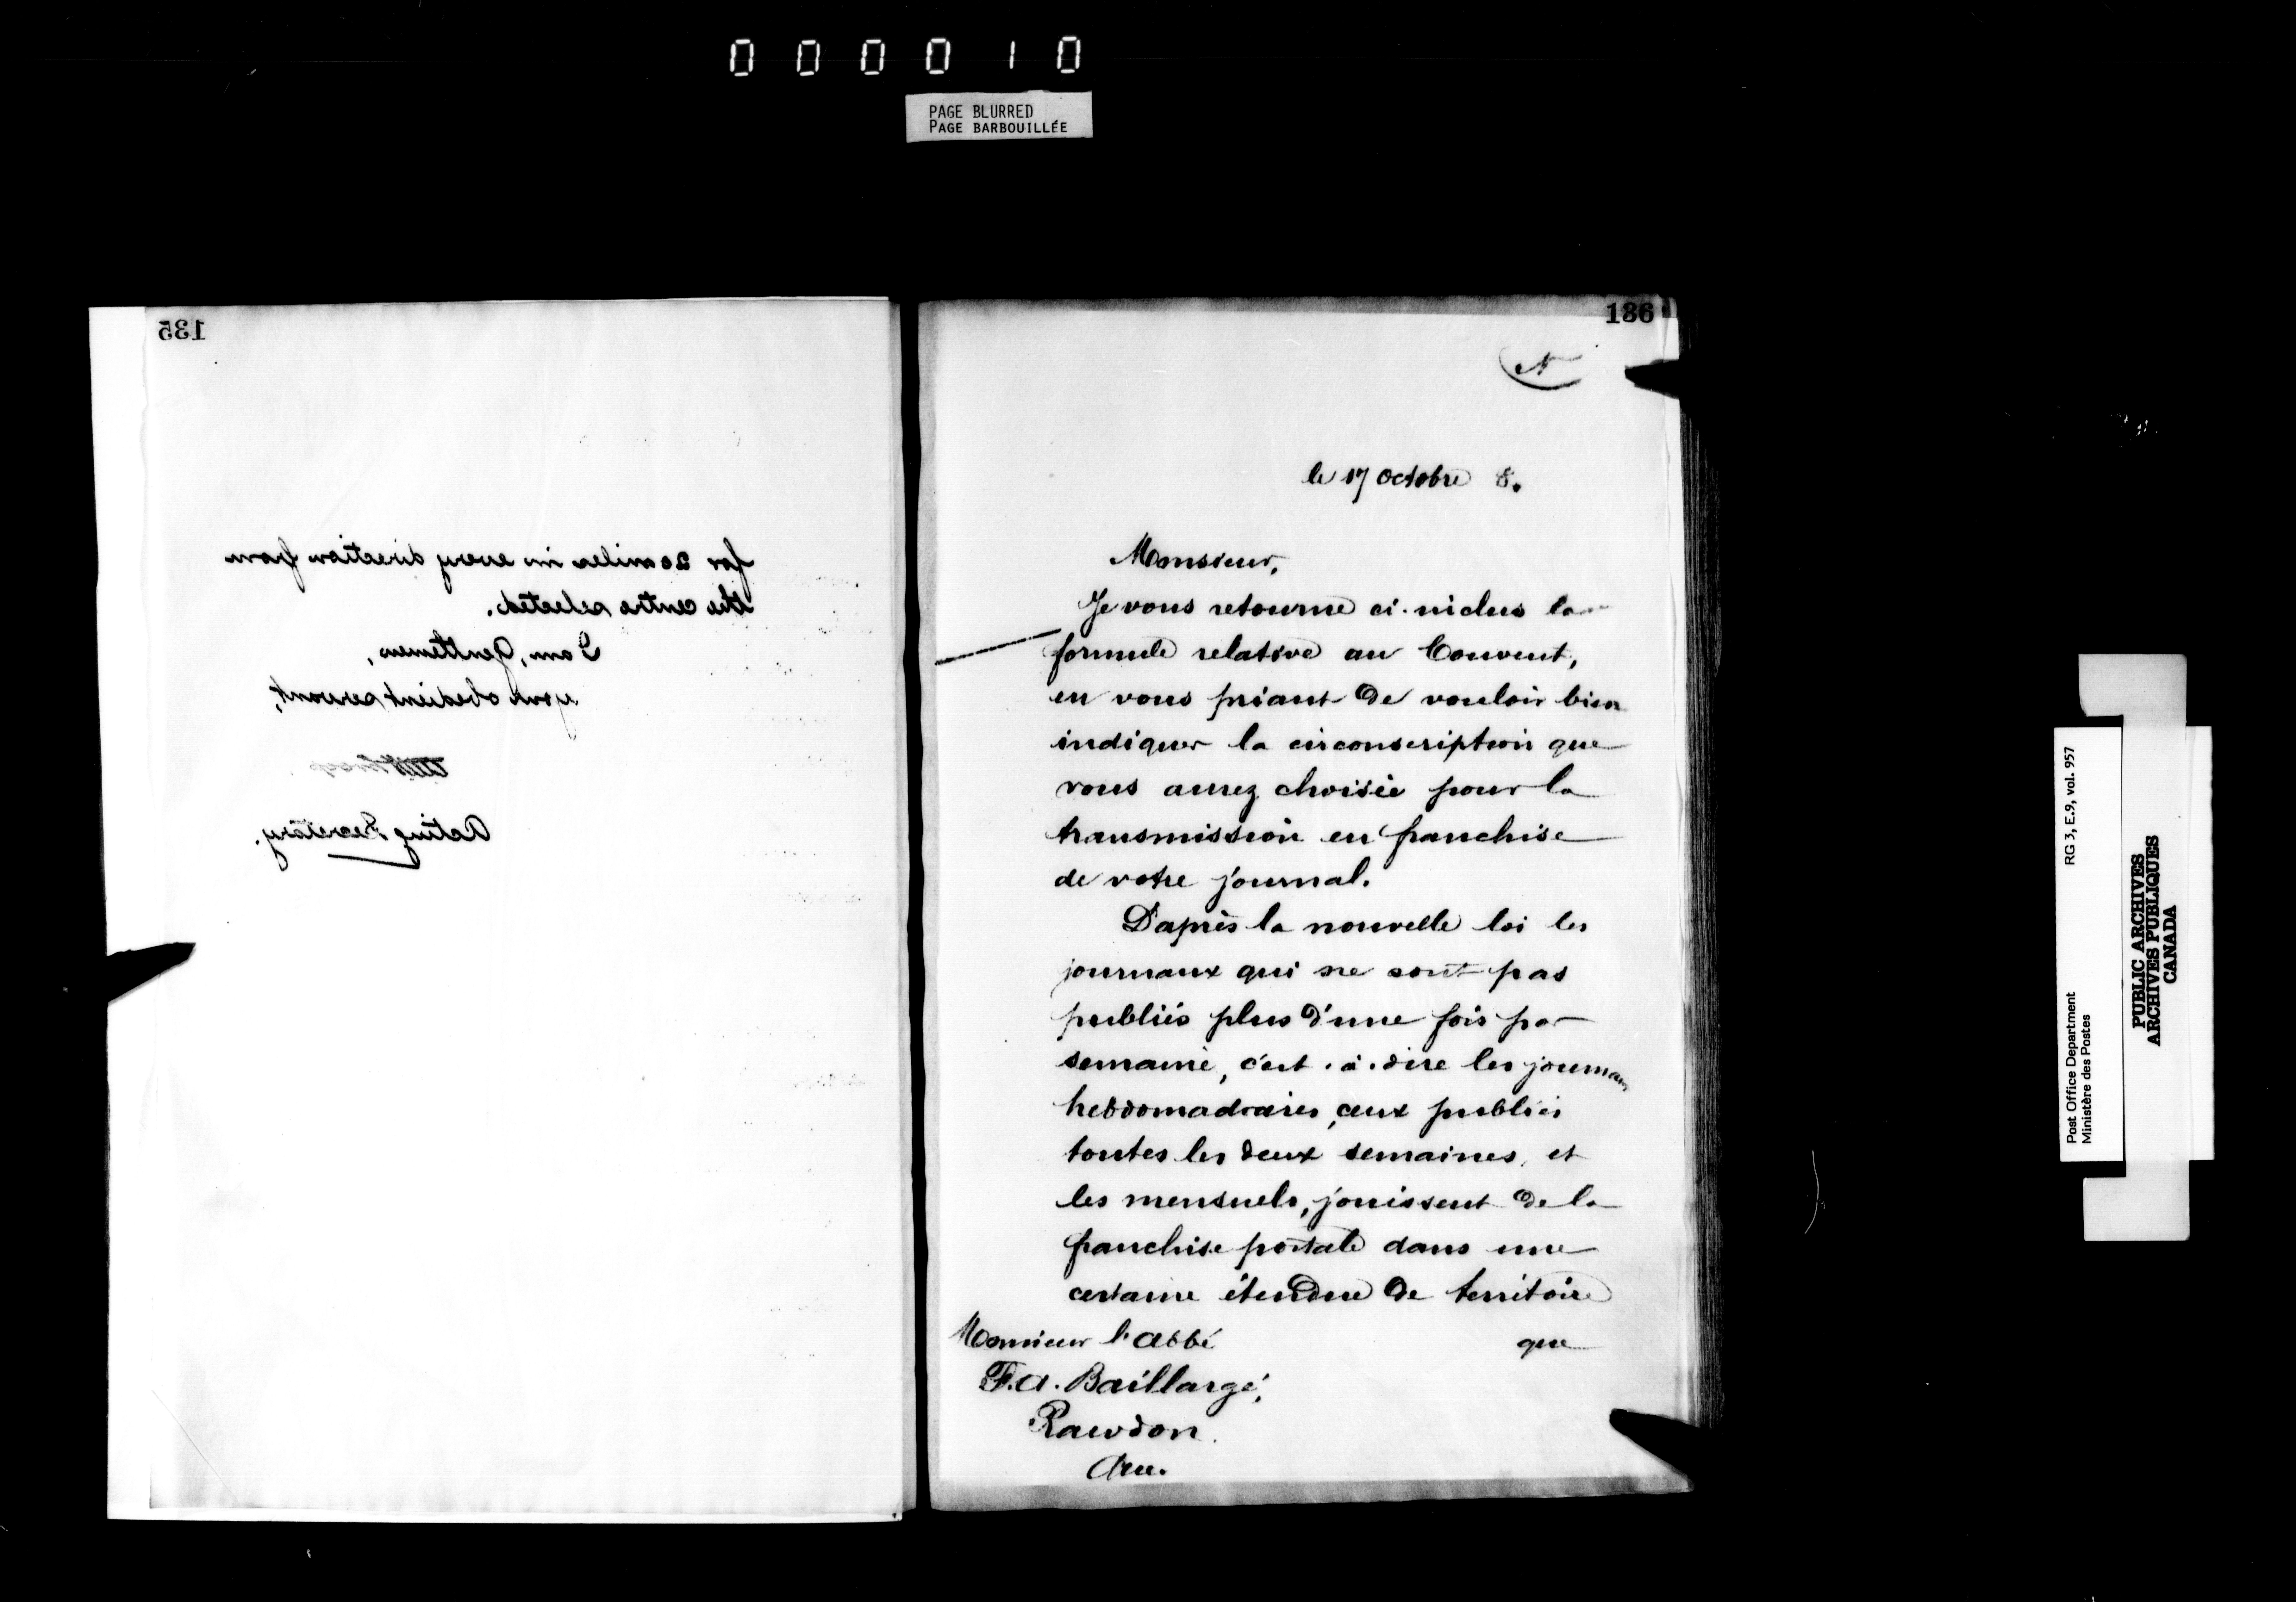 000010
PAGE BLURRED
PAGE BARBOUILLÉE
135
for 20 miles in every direction from
the centre selected.
I am, Gentlemen,
your obedient servant,
Acting Secretary.
136
N
le 17 Octobre 8.
Monsieur,
Je vous retourne ci-inclus la
formule relative au "Couvent,
en vous priant de vouloir bien
indiquer la circonscription que
vous aurez choisie pour la
transmission en franchise
de votre journal.
D'après la nouvelle loi les
journaux qui ne sont pas
publiés plus d'une fois par
semaine, c'est-à-dire les journaux
hebdomadaires, ceux publiés
toutes les deux semaines, et
les mensuels, jouissent de la
franchise postale dans une
certaine étendue de territoire
que
Monsieur l'abbé
F.A. Baillargé,
Rawdon.
Que.
RG 3, E.9, vol. 957
Post Office Department
Ministère des Postes
PUBLIC ARCHIVES
ARCHIVES PUBLIQUES
CANADA